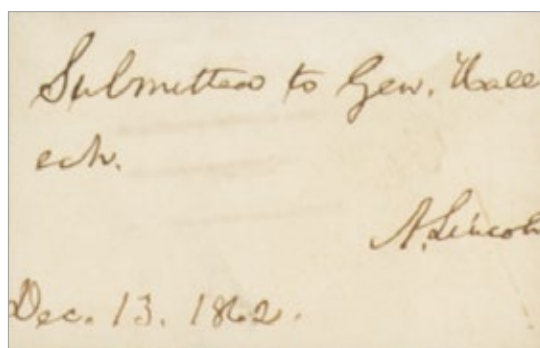 Submitted to Gen. Hall
eck.
A. Lincoln
Dec. 13. 1862.